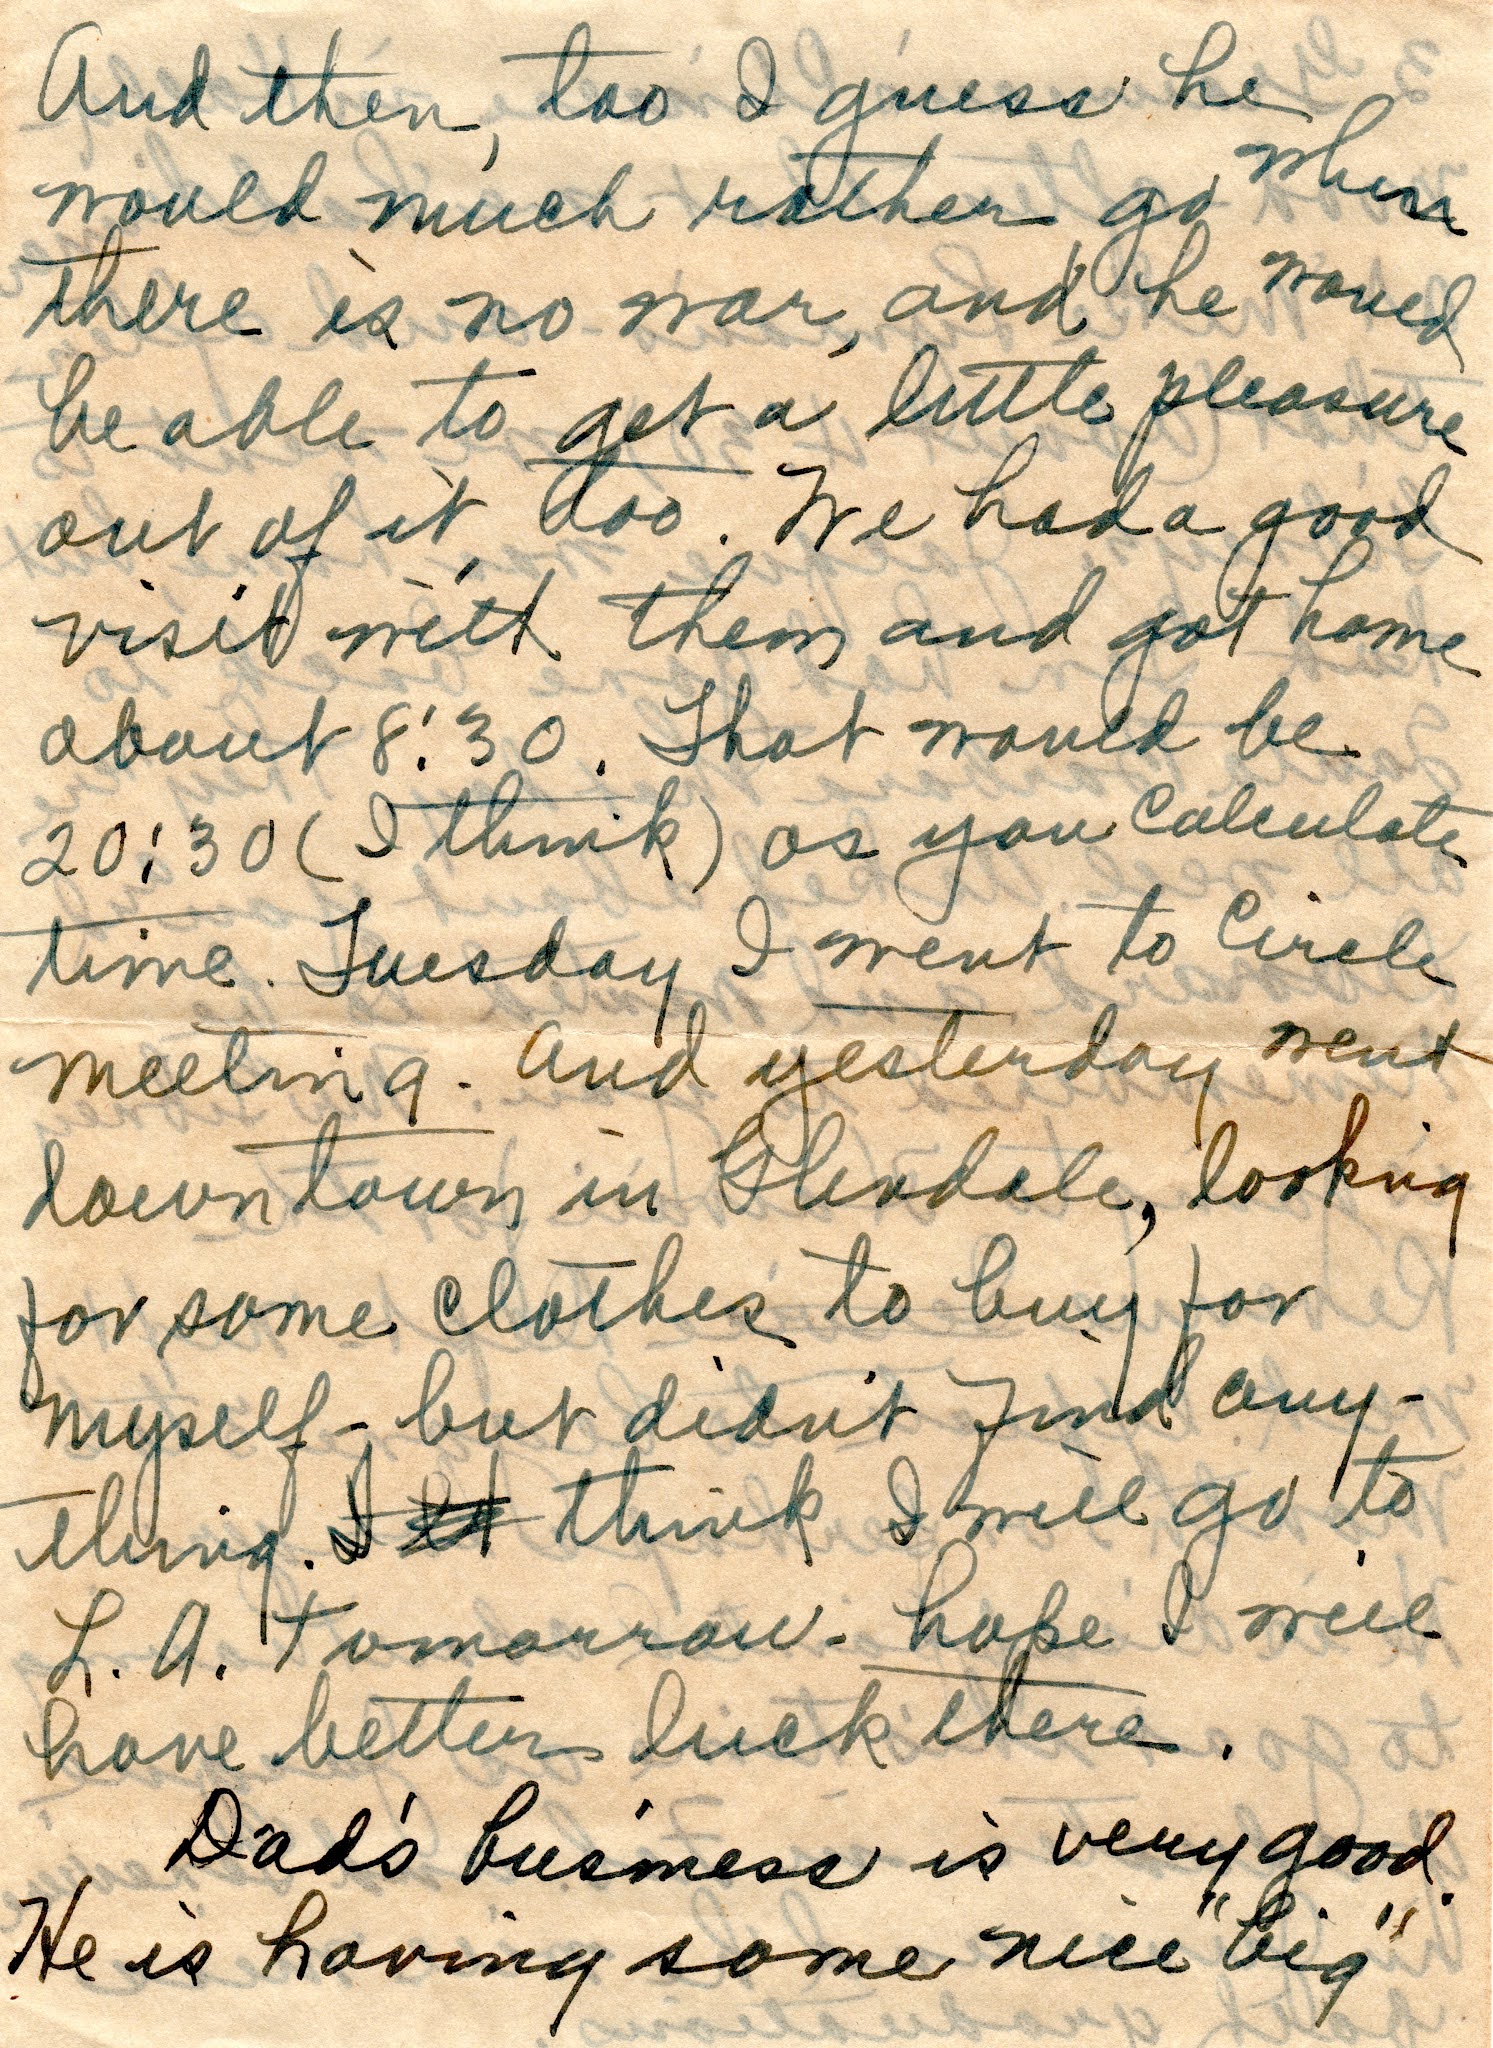 And then, too I guess he
would much rather go when
there is no war, and he would
be able to get a little pleasure
out of it, too. We had a good
visit with them and got home
about 8:30. That would be
20:30 (I think) as you calculate
time. Tuesday I went to Circle
meeting. And yesterday went
downtown in Glendale, looking
for some clothes to buy for
myself - but didn't find any-
thing. I think I will go to
L.A. Tomorrow - hope I will
have better luck there.
Dad's business is very good.
He is having some nice "big"